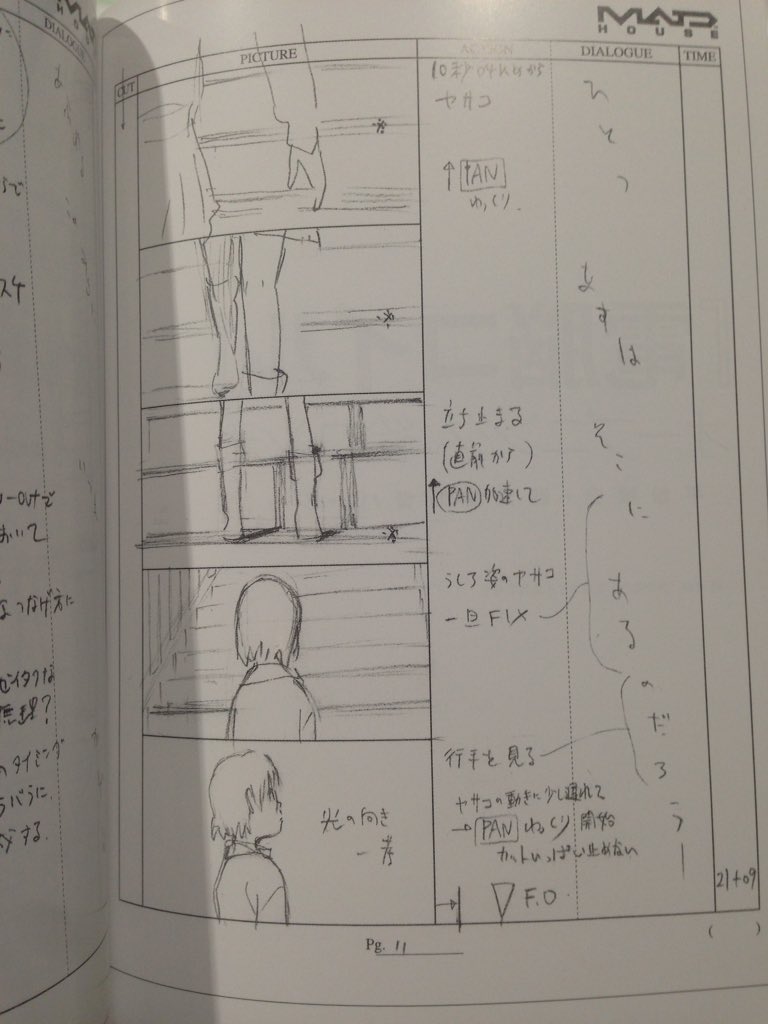 MAD
HOUSE
CUT
PICTURE
ACTION
DIALOGUE
TIME
10秒04Kから
ヤサコ
↑PAN
ゆっくり
ひとつ
あすは
立ち止まる
(直前から)
↑PAN 加速して
そこに
うしろ姿のヤサコ
一旦FIX
ある
行手を見る
のだろうー
光の向き
一考
ヤサコの動きに少し遅れて
→PAN ゆっくり開始
カットいっぱい止めない
F.O
21+09
Pg. 11
( )
DIALOGUE
スケ
おいて
なつなげ方に
無理?
のタイミング
する.